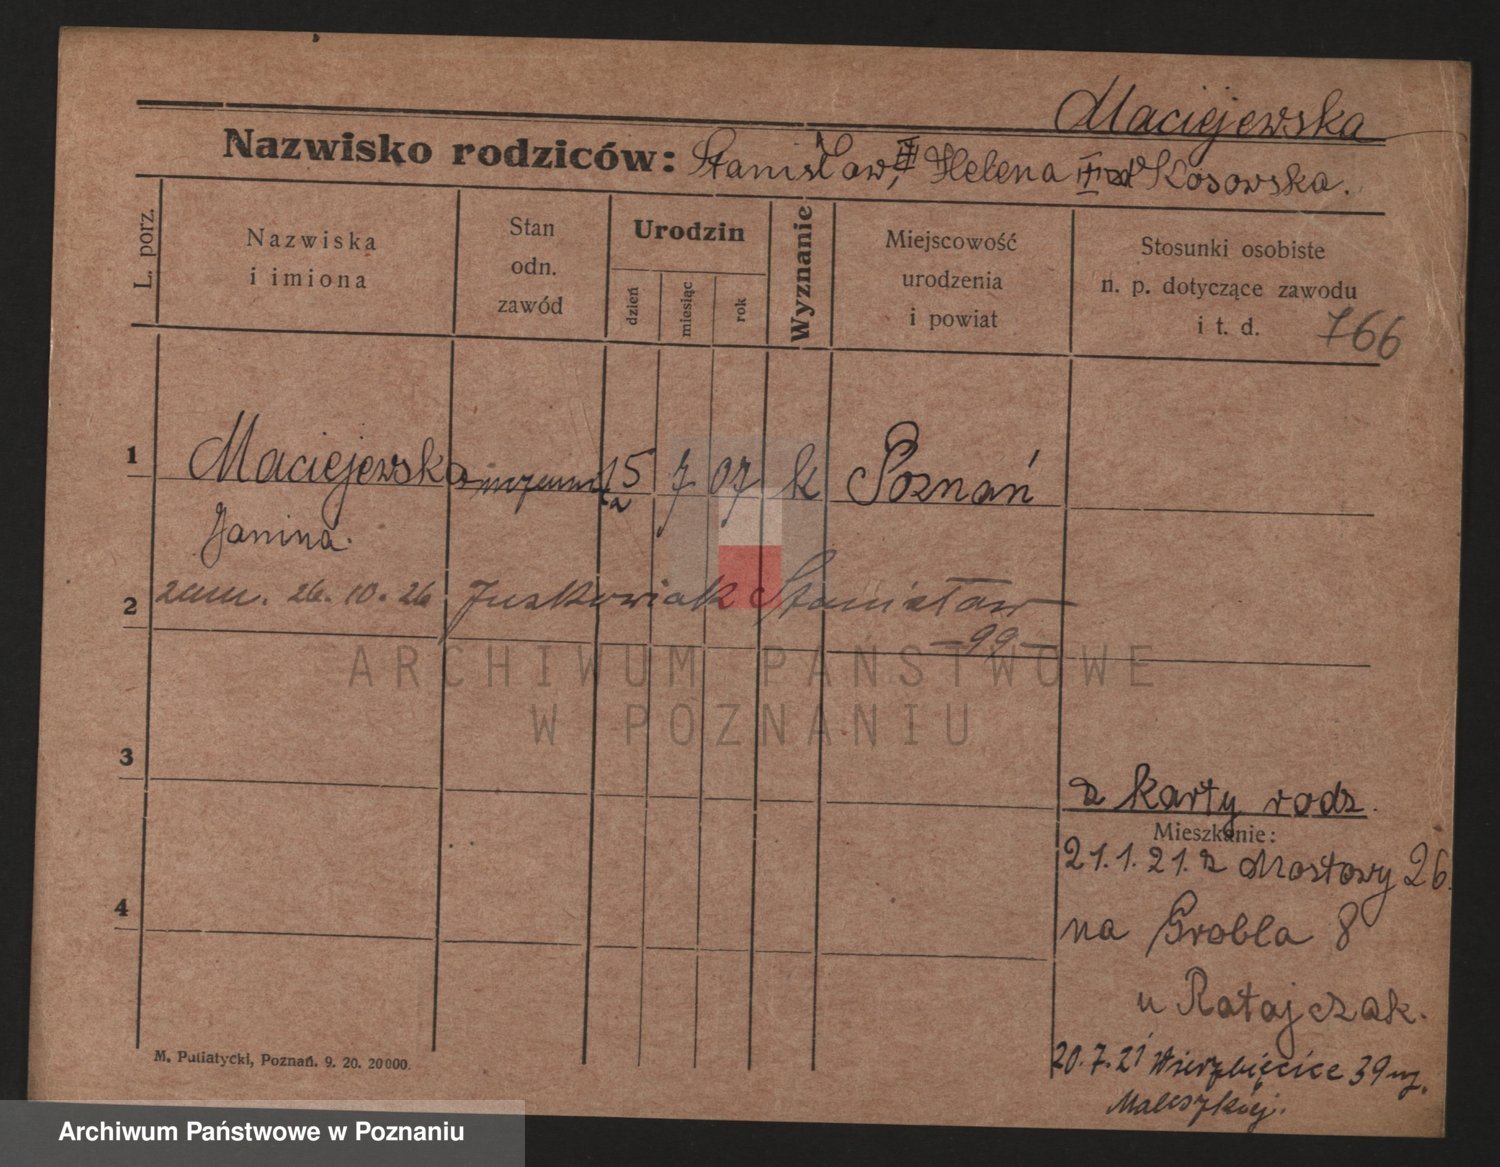 Maciejewska
Nazwisko rodziców: Stanisław, Helena Kosowska.
L. porz.
Nazwiska
i imiona
Stan
odn.
zawód
Urodzin
dzień
miesiąc
rok
Wyznanie
Miejscowość
urodzenia
i powiat
Stosunki osobiste
n. p. dotyczące zawodu
i t. d.
766
1 Maciejewska 15 7 07 k Poznań
Janina.
2 zam. 26.10.26 Juskowiak Stanisław
-99-
ARCHIWUM PAŃSTWOWE
W POZNANIU
3
z karty rodz.
Mieszkanie:
21.1.21. z Mostowy 26.
4
na Grobla 8
u Ratajczak.
20.7.21 Wierzbięcice 39
M. Putiatycki, Poznań. 9. 20. 20000.
Archiwum Państwowe w Poznaniu